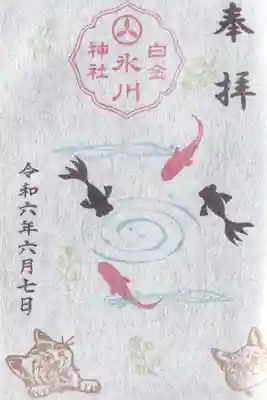 奉拝
白金
氷川
神社
令和六年六月七日